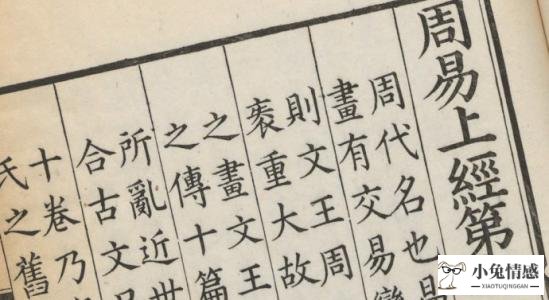 周易上經第
周代名也易
畫有交易變
則文王周
袠重大故
之畫文王
之傳十篇
所亂近世
合古文
十卷乃
氏之舊
小兔情感
XIAOTUQINGGAN